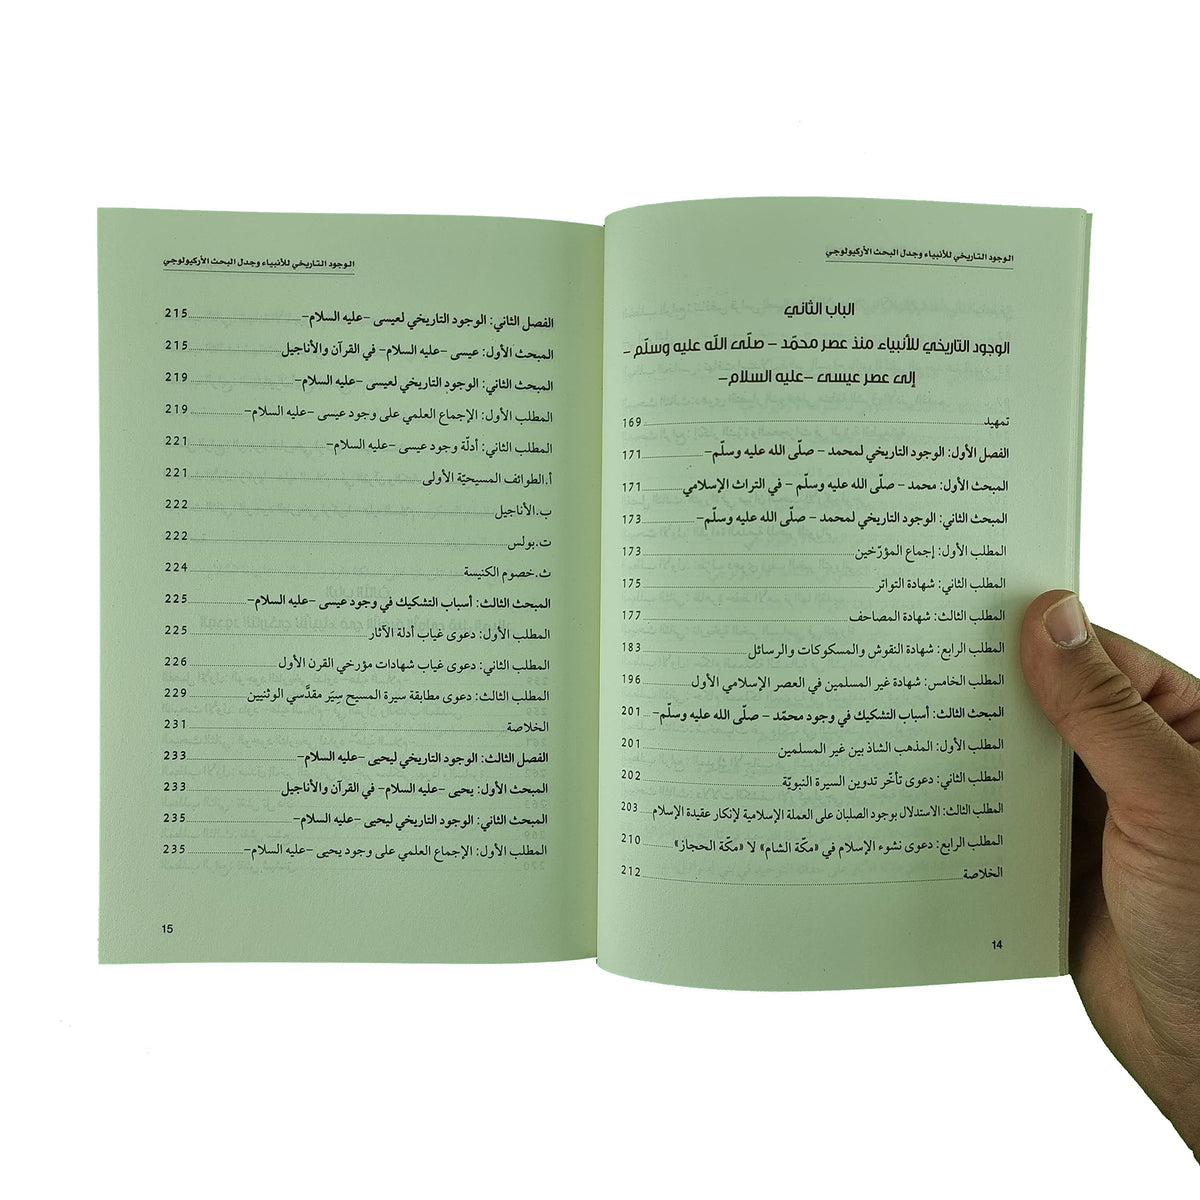 الوجود التاريخي للأنبياء وجدل البحث الأركيولوجي
الباب الثاني
الوجود التاريخي للأنبياء منذ عصر محمّد – صلّى الله عليه وسلّم –
إلى عصر عيسى –عليه السلام–
تمهيد 169
الفصل الأول: الوجود التاريخي لمحمد – صلّى الله عليه وسلّم– 171
المبحث الأول: محمد – صلّى الله عليه وسلّم – في التراث الإسلامي 171
المبحث الثاني: الوجود التاريخي لمحمد – صلّى الله عليه وسلّم– 173
المطلب الأول: إجماع المؤرّخين 173
المطلب الثاني: شهادة التواتر 175
المطلب الثالث: شهادة المصاحف 177
المطلب الرابع: شهادة النقوش والمسكوكات والرسائل 183
المطلب الخامس: شهادة غير المسلمين في العصر الإسلامي الأول 196
المبحث الثالث: أسباب التشكيك في وجود محمّد – صلّى الله عليه وسلّم– 201
المطلب الأول: المذهب الشاذ بين غير المسلمين 201
المطلب الثاني: دعوى تأخّر تدوين السيرة النبويّة 202
المطلب الثالث: الاستدلال بوجود الصلبان على العملة الإسلامية لإنكار عقيدة الإسلام 203
المطلب الرابع: دعوى نشوء الإسلام في «مكّة الشام» لا «مكّة الحجاز» 210
الخلاصة 212
14
الوجود التاريخي للأنبياء وجدل البحث الأركيولوجي
الفصل الثاني: الوجود التاريخي لعيسى –عليه السلام– 215
المبحث الأول: عيسى –عليه السلام– في القرآن والأناجيل 215
المبحث الثاني: الوجود التاريخي لعيسى –عليه السلام– 219
المطلب الأول: الإجماع العلمي على وجود عيسى –عليه السلام– 219
المطلب الثاني: أدلّة وجود عيسى –عليه السلام– 221
أ.الطوائف المسيحيّة الأولى 221
ب.الأناجيل 222
ت.بولس 222
ث.خصوم الكنيسة 224
المبحث الثالث: أسباب التشكيك في وجود عيسى –عليه السلام– 225
المطلب الأول: دعوى غياب أدلة الآثار 225
المطلب الثاني: دعوى غياب شهادات مؤرخي القرن الأول 226
المطلب الثالث: دعوى مطابقة سيرة المسيح سِيَر مقدَّسي الوثنيين 229
الخلاصة 231
الفصل الثالث: الوجود التاريخي ليحيى –عليه السلام– 233
المبحث الأول: يحيى –عليه السلام– في القرآن والأناجيل 233
المبحث الثاني: الوجود التاريخي ليحيى –عليه السلام– 235
المطلب الأول: الإجماع العلمي على وجود يحيى –عليه السلام– 235
15